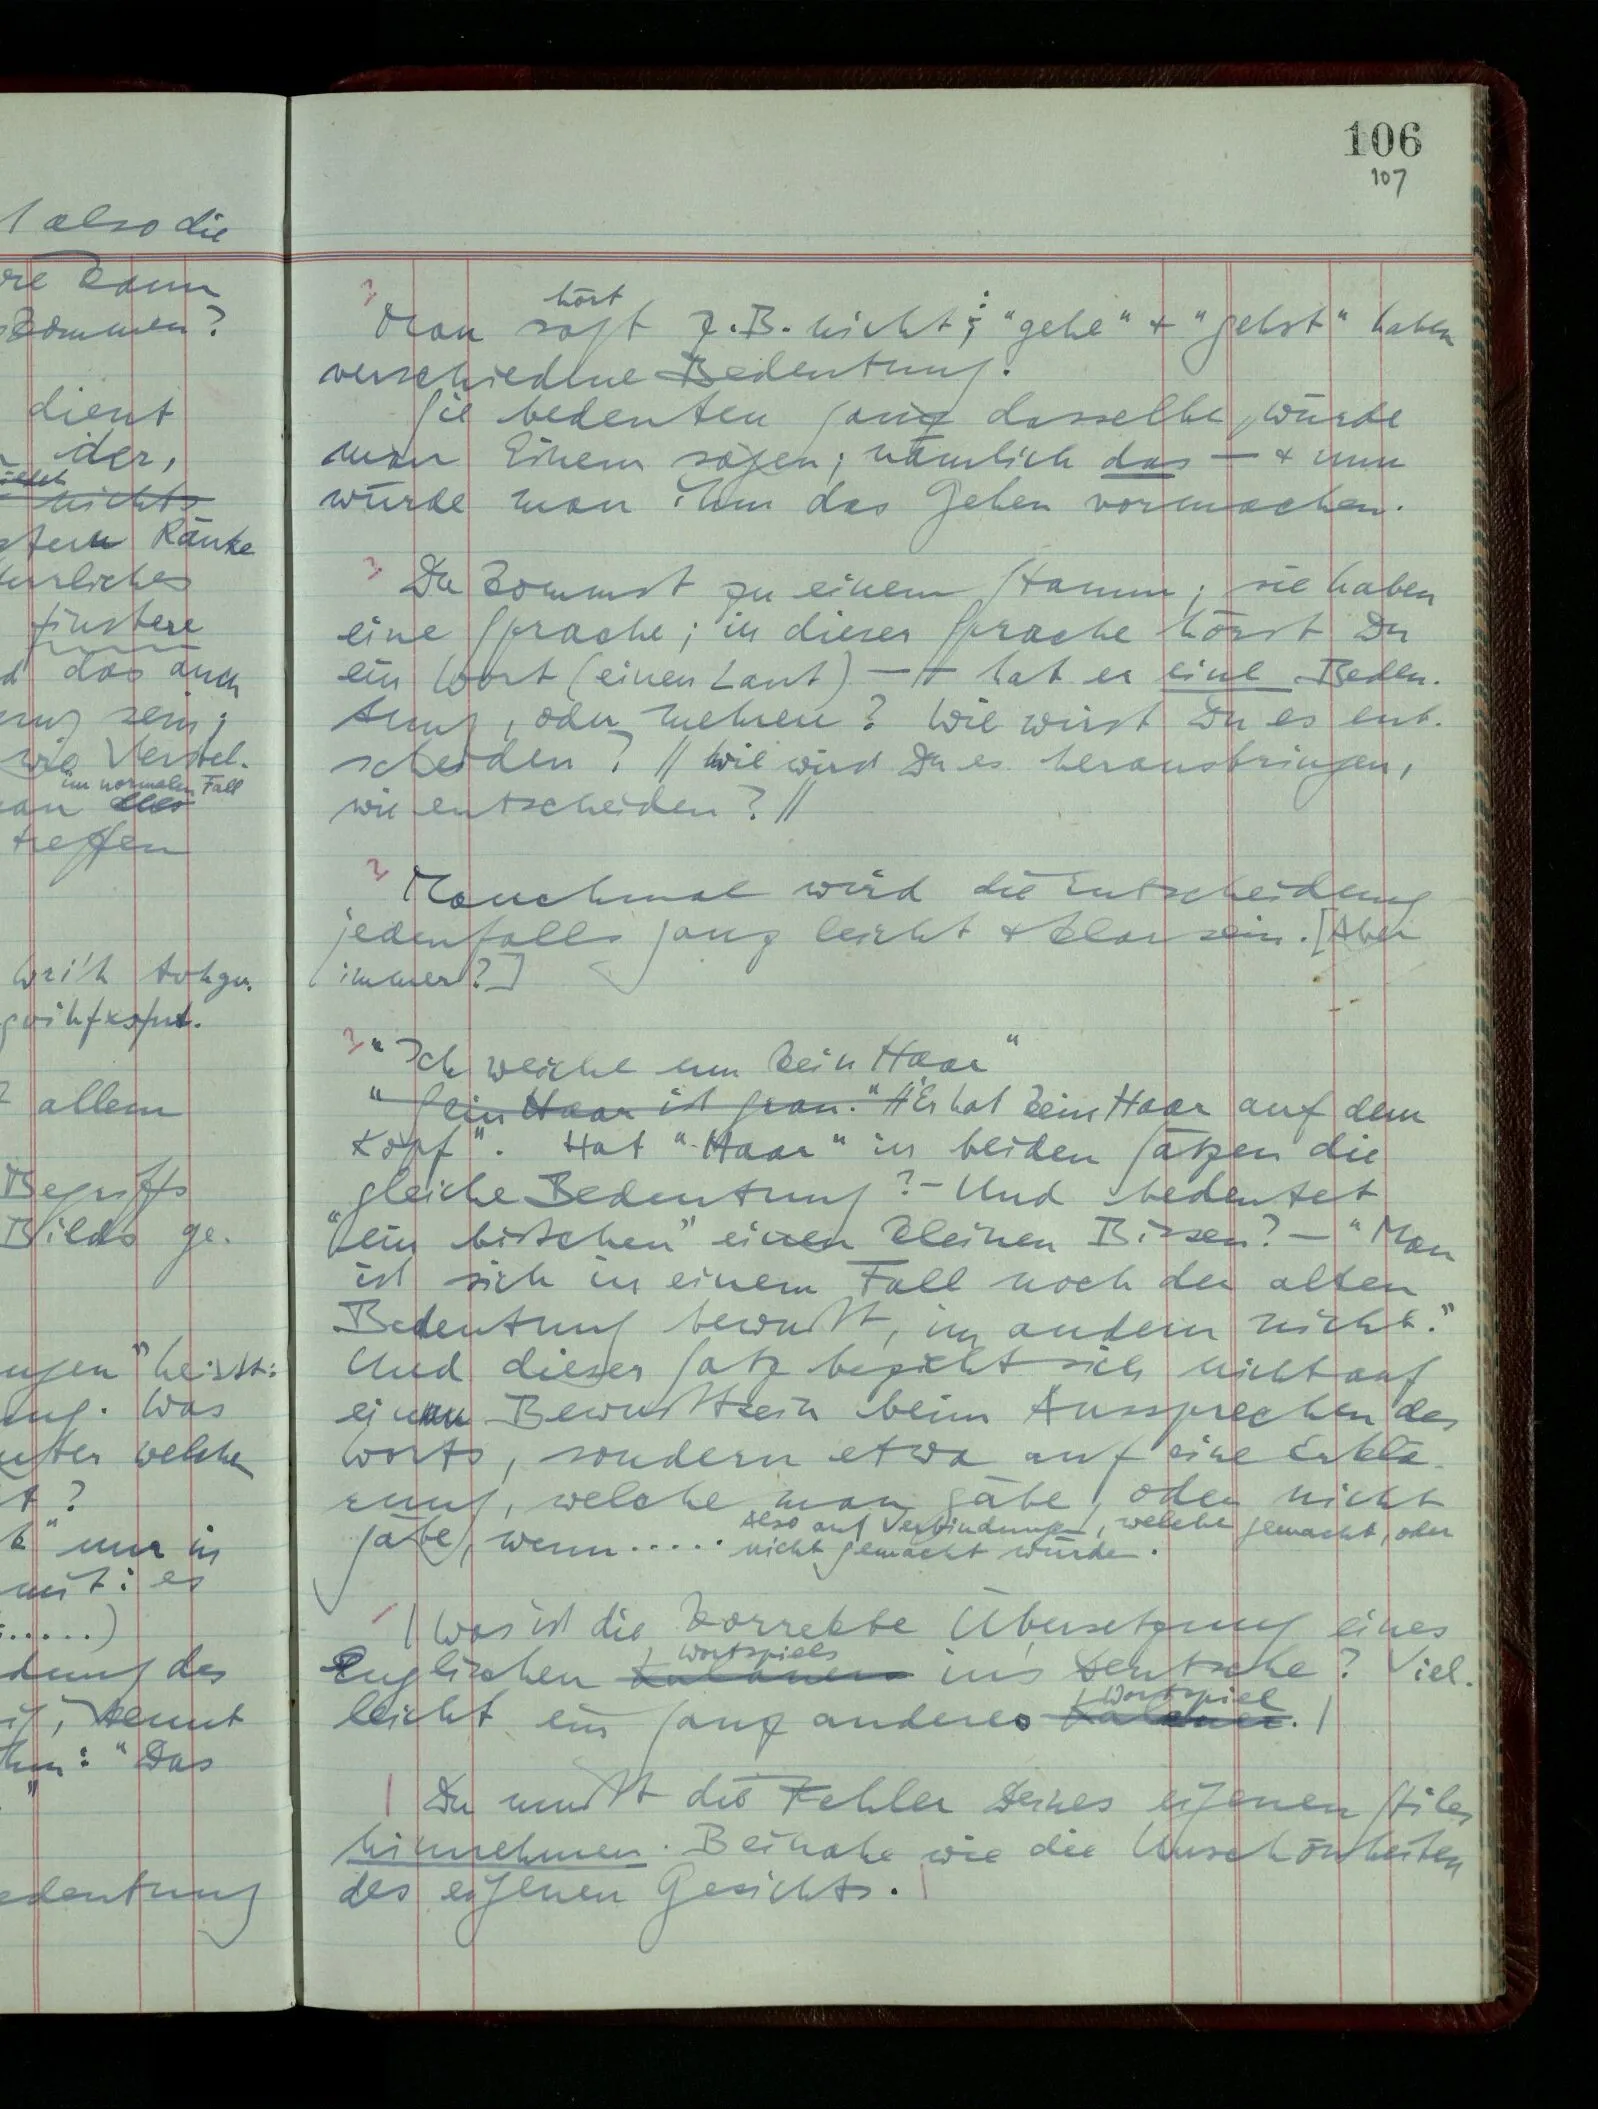 1 also die
kann
kommen?
dient
der,
nichts
stern Ränke
finstere
das auch
sein;
wie Verstel-
im normalen Fall
treffen
wri'h tohgu.
allem
Begriffs
Bilds ge-
" heisst:
Was
unter welchen
t?
" nur in
mit: es
.....)
des
nennt
ihm: "Das
"
edeutung
106
107
hört
Man sagt z.B. nicht: "gehe" + "gehst" haben
verschiedene Bedeutung.
Sie bedeuten ganz dasselbe, würde
man Einem sagen; nämlich das — + nun
würde man ihm das Gehen vormachen.
Du kommst zu einem Stamm; sie haben
eine Sprache; in dieser Sprache hörst Du
ein Wort (einen Laut) — + hat er eine Bedeu-
tung, oder mehrere? Wie wirst Du es ent-
scheiden? // Wie wirst Du es herausbringen,
wie entscheiden? //
Manchmal wird die Entscheidung
jedenfalls ganz leicht + klar sein. [Aber
immer?]
"Ich weiche um kein Haar"
"Sein Haar ist grau." "Er hat kein Haar auf dem
Kopf". Hat "Haar" in beiden Sätzen die
gleiche Bedeutung? – Und bedeutet
"ein bisschen" einen kleinen Bissen? – "Man
ist sich in einem Fall noch der alten
Bedeutung bewußt, im andern nicht."
Und dieser Satz bezieht sich nicht auf
ein Bewußtsein beim Aussprechen des
Worts, sondern etwa auf eine Erklä-
rung, welche man gäbe, oder nicht
Also auf Verbindungen, welche gemacht, oder
gäbe, wenn ..... nicht gemacht würden.
| Was ist die korrekte Übersetzung eines
Wortspiels
Englischen Kalauers ins Deutsche? Viel-
Wortspiel
leicht ein ganz anderes Kalauer. |
| Du mußt die Fehler Deines eigenen Stiles
hinnehmen. Beinahe wie die Unschönheiten
des eigenen Gesichts. |